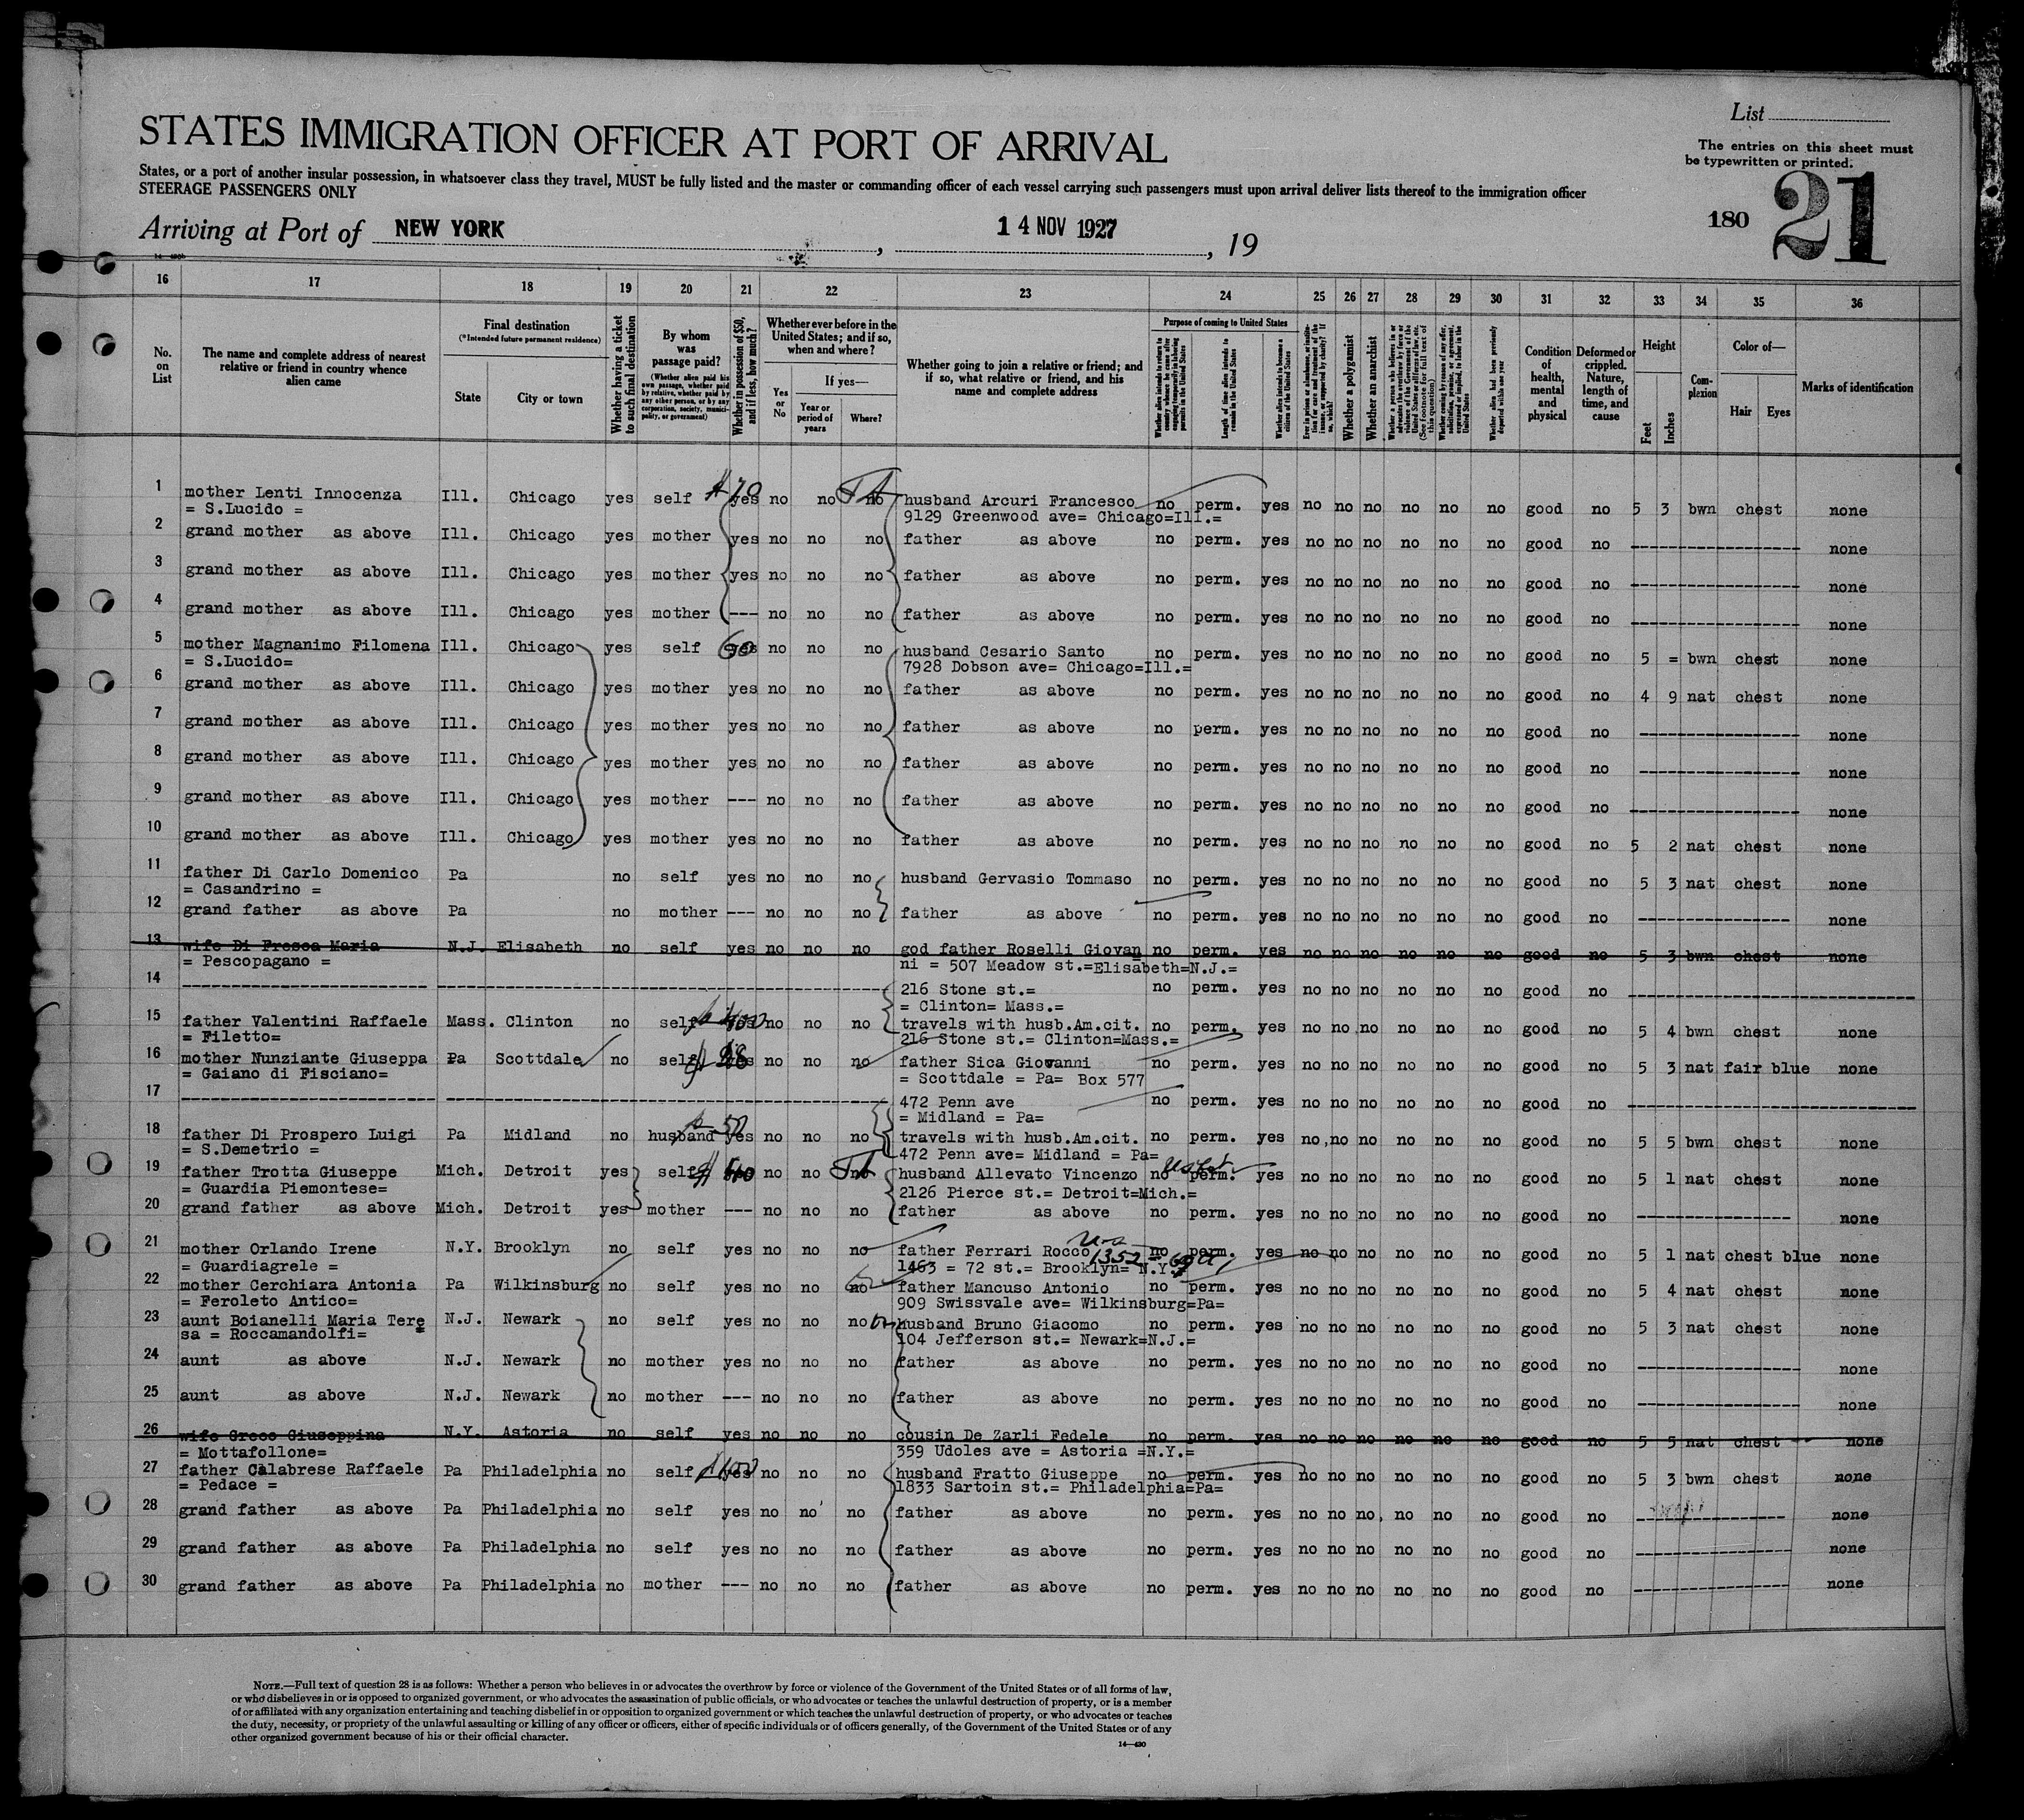 List
STATES IMMIGRATION OFFICER AT PORT OF ARRIVAL
The entries on this sheet must
be typewritten or printed.
States, or a port of another insular possession, in whatsoever class they travel, MUST be fully listed and the master or commanding officer of each vessel carrying such passengers must upon arrival deliver lists thereof to the immigration officer
STEERAGE PASSENGERS ONLY
180 21
Arriving at Port of NEW YORK , 14 NOV 1927 , 19
16 17 18 19 20 21 22 23 24 25 26 27 28 29 30 31 32 33 34 35 36
No. on List
The name and complete address of nearest relative or friend in country whence alien came
Final destination
(*Intended future permanent residence)
State City or town
Whether having a ticket to such final destination
By whom was passage paid?
(Whether alien paid his own passage, whether paid by relative, whether paid by any other person, or by any corporation, society, municipality, or government)
Whether in possession of $50, and if less, how much?
Whether ever before in the United States; and if so, when and where?
Yes or No
If yes—
Year or period of years Where?
Whether going to join a relative or friend; and if so, what relative or friend, and his name and complete address
Purpose of coming to United States
Length of time alien intends to remain in the United States
Whether alien intends to become a citizen of the United States
Whether a polygamist
Whether an anarchist
Condition of health, mental and physical
Deformed or crippled. Nature, length of time, and cause
Height
Feet Inches
Complexion
Color of—
Hair Eyes
Marks of identification
1 mother Lenti Innocenza Ill. Chicago yes self $70 yes no no no husband Arcuri Francesco no perm. yes no no no no no no good no 5 3 bwn chest none
= S.Lucido = 9129 Greenwood ave= Chicago=Ill.=
2 grand mother as above Ill. Chicago yes mother yes no no no father as above no perm. yes no no no no no no good no none
3 grand mother as above Ill. Chicago yes mother yes no no no father as above no perm. yes no no no no no no good no none
4 grand mother as above Ill. Chicago yes mother --- no no no father as above no perm. yes no no no no no no good no none
5 mother Magnanimo Filomena Ill. Chicago yes self 60 yes no no no husband Cesario Santo no perm. yes no no no no no no good no 5 = bwn chest none
= S.Lucido= 7928 Dobson ave= Chicago=Ill.=
6 grand mother as above Ill. Chicago yes mother yes no no no father as above no perm. yes no no no no no no good no 4 9 nat chest none
7 grand mother as above Ill. Chicago yes mother yes no no no father as above no perm. yes no no no no no no good no none
8 grand mother as above Ill. Chicago yes mother yes no no no father as above no perm. yes no no no no no no good no none
9 grand mother as above Ill. Chicago yes mother --- no no no father as above no perm. yes no no no no no no good no none
10 grand mother as above Ill. Chicago yes mother yes no no no father as above no perm. yes no no no no no no good no 5 2 nat chest none
11 father Di Carlo Domenico Pa no self yes no no no husband Gervasio Tommaso no perm. yes no no no no no no good no 5 3 nat chest none
= Casandrino =
12 grand father as above Pa no mother --- no no no father as above no perm. yes no no no no no no good no none
13 wife Di Fresca Maria N.J. Elisabeth no self yes no no no god father Roselli Giovan no perm. yes no no no no no no good no 5 3 bwn chest none
= Pescopagano = ni = 507 Meadow st.=Elisabeth=N.J.=
14 216 Stone st.= no perm. yes no no no no no no good no
= Clinton= Mass.=
15 father Valentini Raffaele Mass. Clinton no self yes no no no travels with husb.Am.cit. no perm. yes no no no no no no good no 5 4 bwn chest none
= Filetto= 216 Stone st.= Clinton=Mass.=
16 mother Nunziante Giuseppa Pa Scottdale no self yes no no no father Sica Giovanni no perm. yes no no no no no no good no 5 3 nat fair blue none
= Gaiano di Fisciano= = Scottdale = Pa= Box 577
17 472 Penn ave no perm. yes no no no no no no good no
= Midland = Pa=
18 father Di Prospero Luigi Pa Midland no husband 50 yes no no no travels with husb.Am.cit. no perm. yes no no no no no no good no 5 5 bwn chest none
= S.Demetrio = 472 Penn ave= Midland = Pa=
19 father Trotta Giuseppe Mich. Detroit yes self no no no husband Allevato Vincenzo no perm. yes no no no no no no good no 5 1 nat chest none
= Guardia Piemontese= 2126 Pierce st.= Detroit=Mich.=
20 grand father as above Mich. Detroit yes mother --- no no no father as above no perm. yes no no no no no no good no none
21 mother Orlando Irene N.Y. Brooklyn no self yes no no no father Ferrari Rocco no perm. yes no no no no no no good no 5 1 nat chest blue none
= Guardiagrele = 1463 = 72 st.= Brooklyn= N.Y. 1352
22 mother Cerchiara Antonia Pa Wilkinsburg no self yes no no no father Mancuso Antonio no perm. yes no no no no no no good no 5 4 nat chest none
= Feroleto Antico= 909 Swissvale ave= Wilkinsburg=Pa=
23 aunt Boianelli Maria Tere N.J. Newark no self yes no no no husband Bruno Giacomo no perm. yes no no no no no no good no 5 3 nat chest none
sa = Roccamandolfi= 104 Jefferson st.= Newark=N.J.=
24 aunt as above N.J. Newark no mother yes no no no father as above no perm. yes no no no no no no good no none
25 aunt as above N.J. Newark no mother --- no no no father as above no perm. yes no no no no no no good no none
26 wife Greco Giuseppina N.Y. Astoria no self yes no no no cousin De Zarli Fedele no perm. yes no no no no no no good no 5 5 nat chest none
= Mottafollone= 359 Udoles ave = Astoria =N.Y.=
27 father Calabrese Raffaele Pa Philadelphia no self $100 yes no no no husband Fratto Giuseppe no perm. yes no no no no no no good no 5 3 bwn chest none
= Pedace = 1833 Sartoin st.= Philadelphia=Pa=
28 grand father as above Pa Philadelphia no self yes no no no father as above no perm. yes no no no no no no good no none
29 grand father as above Pa Philadelphia no self yes no no no father as above no perm. yes no no no no no no good no none
30 grand father as above Pa Philadelphia no mother --- no no no father as above no perm. yes no no no no no no good no none
NOTE.—Full text of question 28 is as follows: Whether a person who believes in or advocates the overthrow by force or violence of the Government of the United States or of all forms of law,
or who disbelieves in or is opposed to organized government, or who advocates the assassination of public officials, or who advocates or teaches the unlawful destruction of property, or is a member
of or affiliated with any organization entertaining and teaching disbelief in or opposition to organized government or which teaches the unlawful destruction of property, or who advocates or teaches
the duty, necessity, or propriety of the unlawful assaulting or killing of any officer or officers, either of specific individuals or of officers generally, of the Government of the United States or of any
other organized government because of his or their official character.
14—430